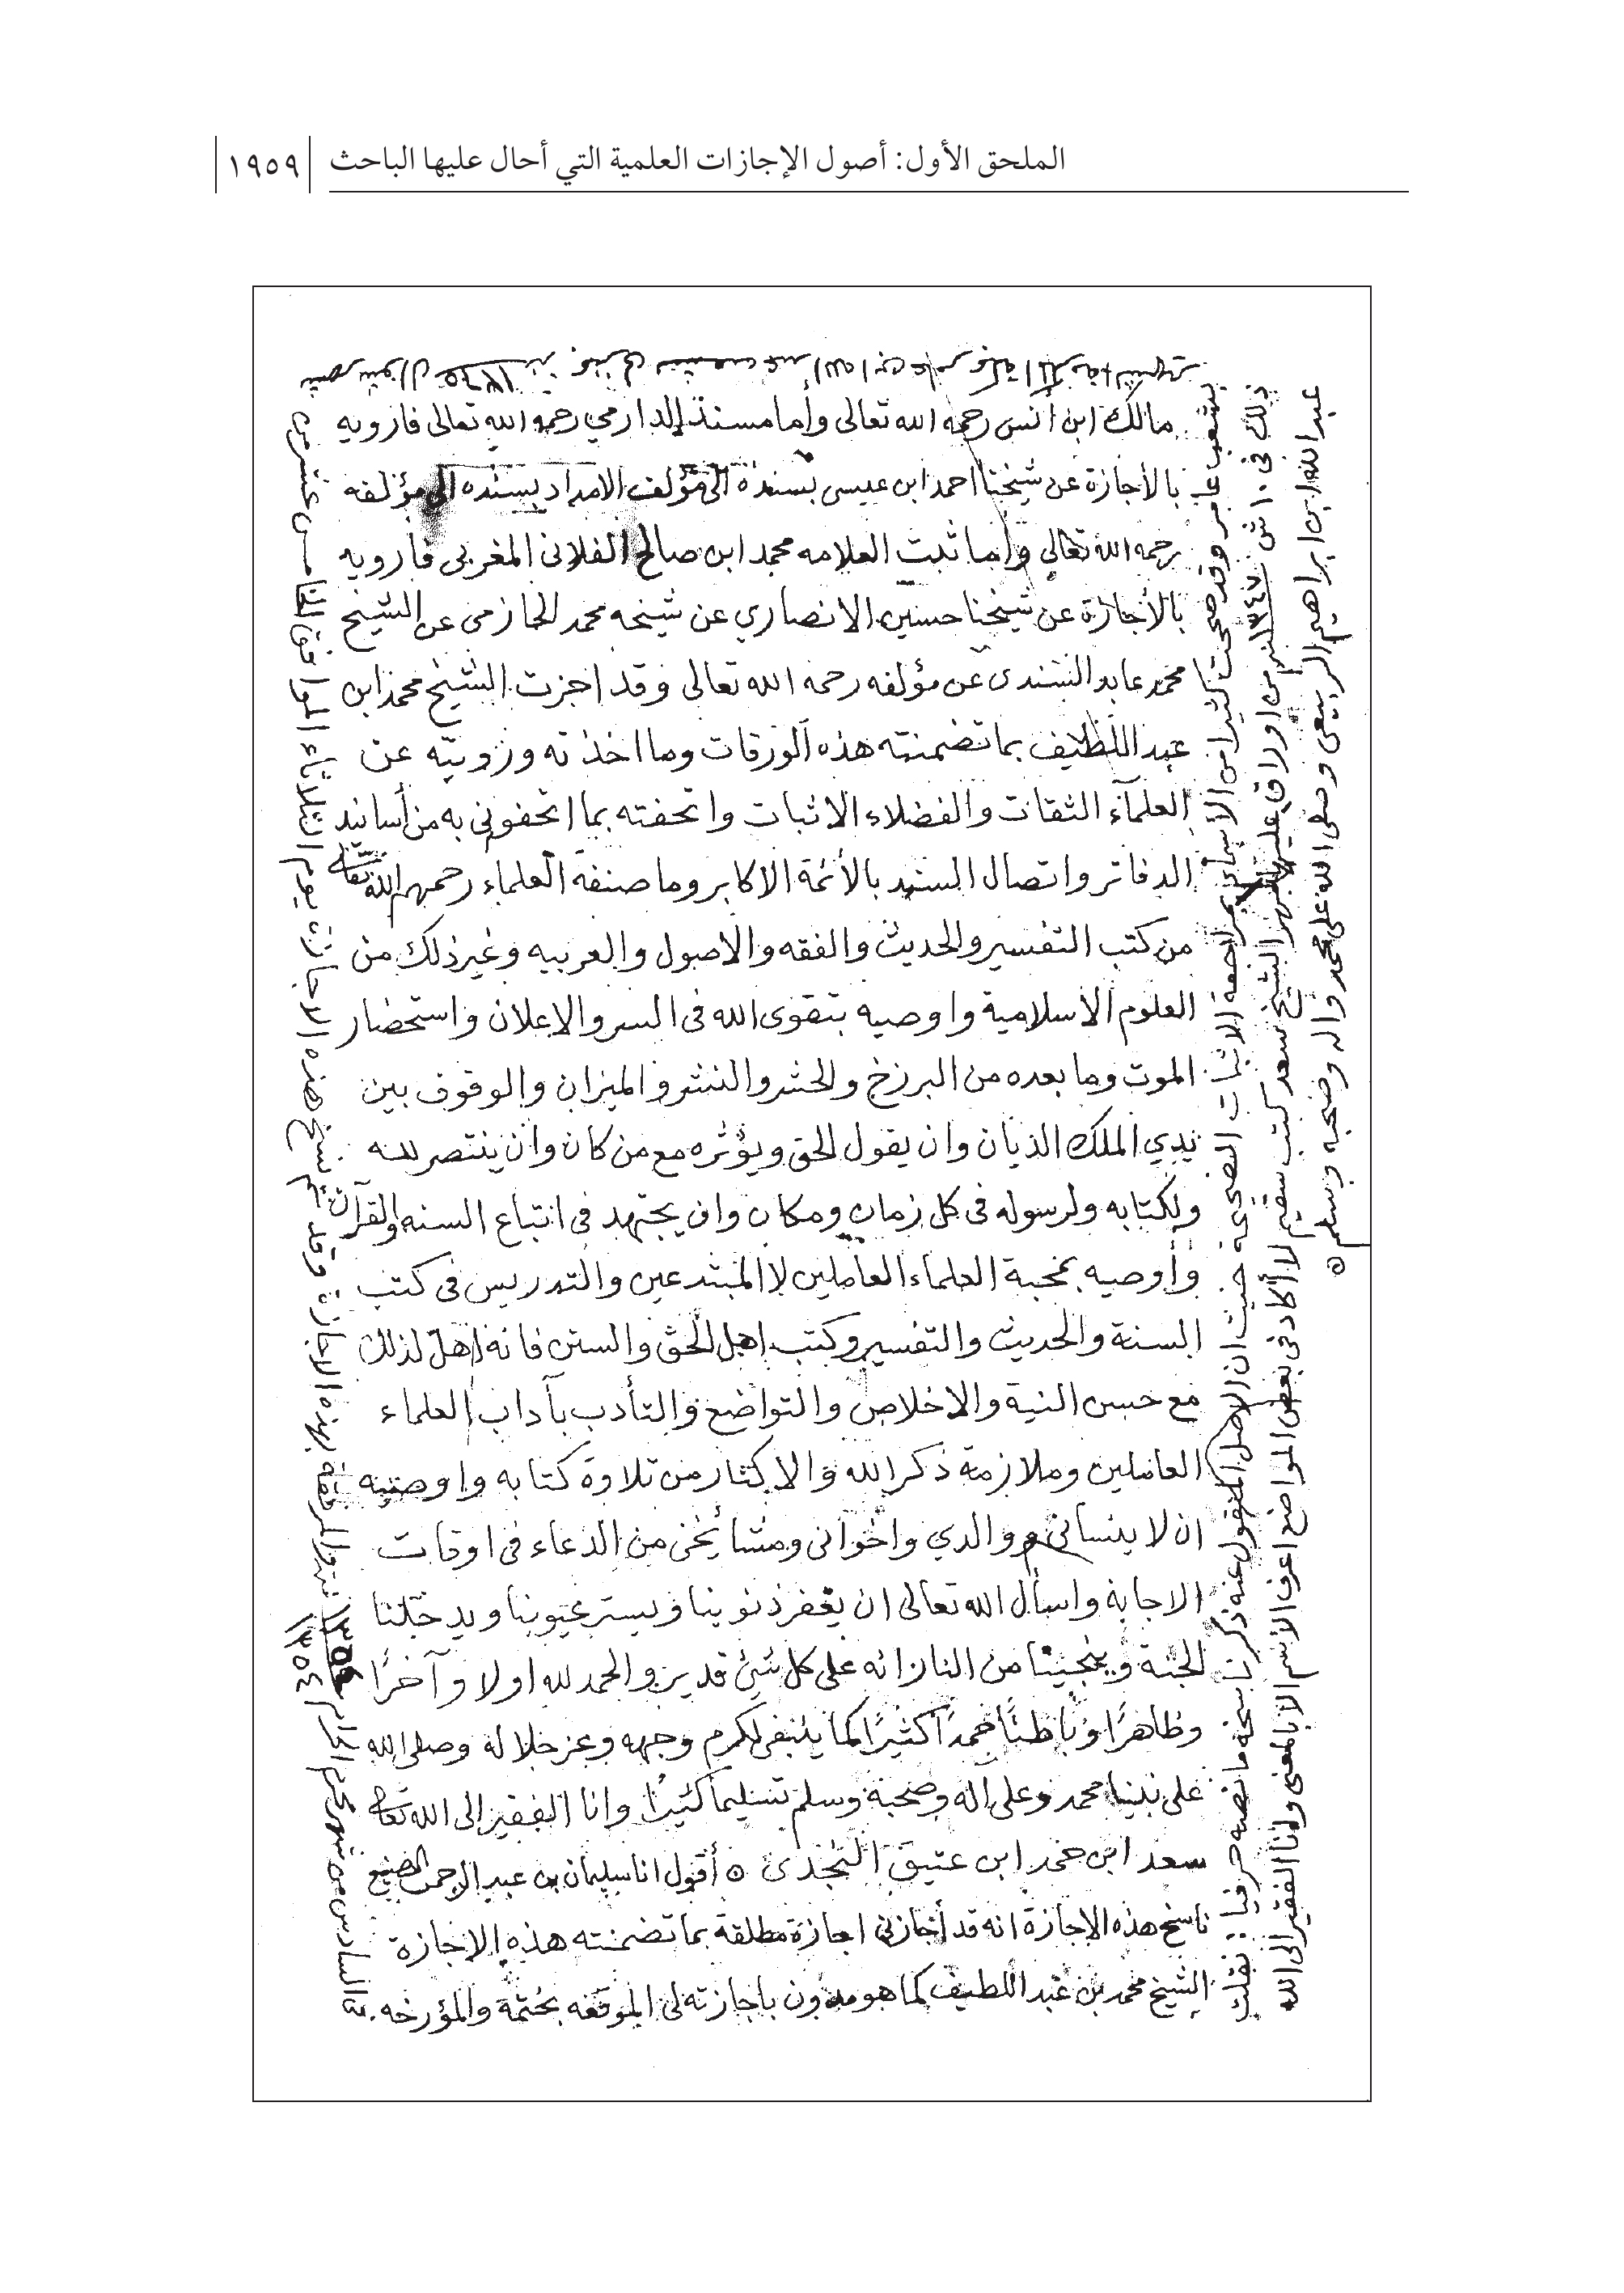 الملحق الأول: أصول الإجازات العلمية التي أحال عليها الباحث ١٩٥٩
مالك ابن أنس رحمه الله تعالى وأما مسند الدارمي رحمه الله تعالى فارويه
بالأجازة عن شيخنا احمد ابن عيسى بسنده الى مؤلف الامداد بسنده الى مؤلفه
رحمه الله تعالى وأما ثبت العلامه محمد ابن صالح الفلاني المغربي فارويه
بالأجازة عن شيخنا حسين الانصاري عن شيخه محمد الحازمي عن الشيخ
محمد عابد السندى عن مؤلفه رحمه الله تعالى وقد اجزت الشيخ محمد ابن
عبد اللطيف بما تضمنته هذه الورقات وما اخذته ورويته عن
العلمآء الثقات والفضلاء الاثبات واتحفته بما اتحفونى به من أسانيد
الدفاتر واتصال السند بالأئمة الاكابر وما صنفه العلماء رحمهم الله تعالى
من كتب التفسير والحديث والفقه والاصول والعربيه وغير ذلك من
العلوم الاسلامية واوصيه بتقوى الله فى السر والاعلان واستحضار
الموت وما بعده من البرزخ والحشر والنشر والميزان والوقوف بين
يدي الملك الديان وان يقول الحق ويؤثره مع من كان وان ينتصر لله
ولكتابه ولرسوله فى كل زمان ومكان وان يجتهد فى اتباع السنه والقرآن
وأوصيه بمحبة العلماء العاملين لا المبتدعين والتدريس فى كتب
السنة والحديث والتفسير وكتب اهل الحق والسنن فانه اهل لذلك
مع حسن النية والاخلاص والتواضع والتأدب بآداب العلماء
العاملين وملازمة ذكر الله والاكثار من تلاوة كتابه واوصيه
ان لا ينسانى ووالدي واخوانى ومشايخى من الدعاء فى اوقات
الاجابه واسأل الله تعالى ان يغفر ذنوبنا ويستر عيوبنا ويدخلنا
الجنة وينجينا من النار انه على كل شيئ قدير والحمد لله اولا وآخرًا
وظاهرًا وباطنًا حمدًا كثيرًا كما ينبغى لكرم وجهه وعز جلاله وصلى الله
على نبينا محمد وعلى اله وصحبه وسلم تسليما كثيرًا وانا الفقير الى الله تعالى
سعد ابن حمد ابن عتيق النجدى ٥ أقول انا سليمان بن عبد الرحمن الصنيع
ناسخ هذه الإجازة انه قد أجازنى اجازة مطلقة بما تضمنته هذه الاجازة
الشيخ محمد بن عبد اللطيف كما هو مدون باجازته لى الموقعه بختمه والمؤرخه
السادس من شهر محرم الحرام ١٣٥٤
وقد تم نسخ هذه الاجازة يوم الثلاثاء الموافق الخامس عشر من
شهر شوال
حيث ان الاصل المنقول عنه ذكر ناسخه ما نصه حرفيا نقلت
ذلك فى ١٠ ش ١٣٤٧ من اوراق عليها مهر الشيخ سعد كتب سقيم لا أكاد فى بعض المواضع اعرف الأسم الا بالمعنى وانا الفقير الى الله
عبد الله ابن ابراهيم الربيعى وصلى الله على محمد واله وصحبه وسلم ٥